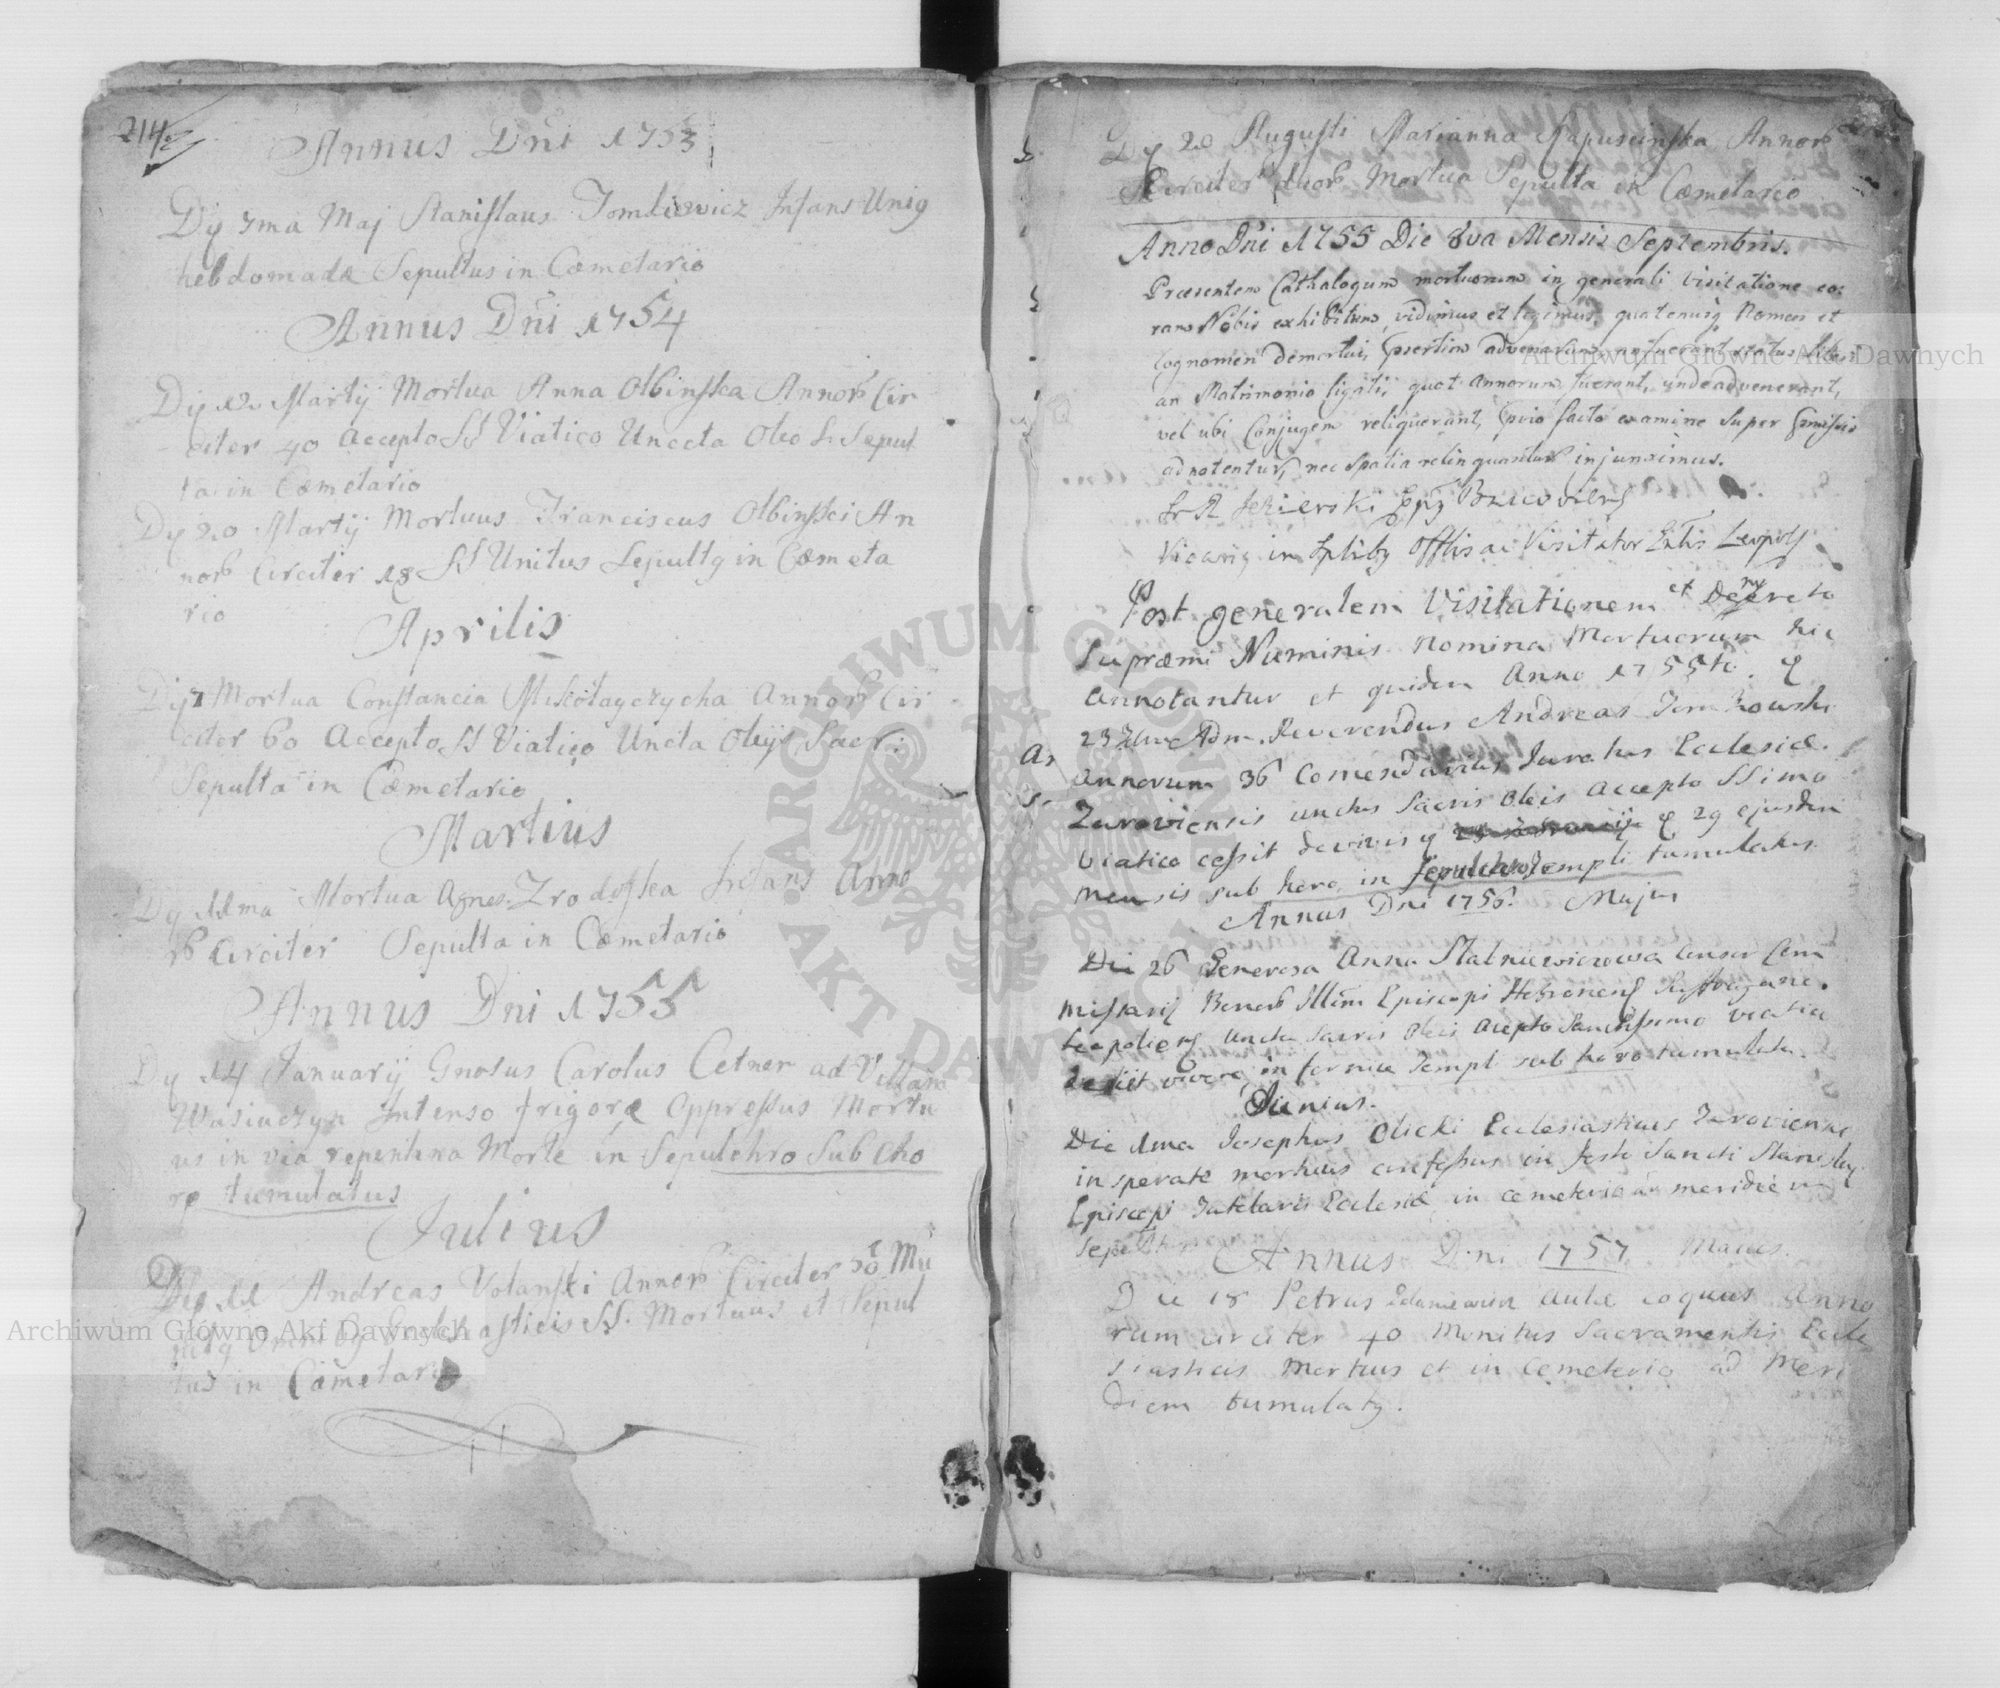 214
Annus Dni 1753
Dij 7ma Maj Stanislaus Tomkiewicz Infans Unig
hebdomadæ Sepultus in Cæmetario
Annus Dni 1754
Martij Mortua Anna Olbinska Annorb Cir
citer 40 accepto SS Viatico Uncta Oleo S. Sepul
ta in Cæmetario
Dij 20 Martij Mortuus Franciscus Olbinski An
norb Circiter 18 SS Unitus Sepultg in Cæmeta
rio
Aprilis
Dij 7 Mortua Constancia Annorb Cir
citer 60 Accepto SS Viatico Uncta Olijs Sacri:
Sepulta in Cæmetario
Martius
Dij 11ma Mortua Agnes Infans Anno
rb Circiter Sepulta in Cæmetario
Annus Dni 1755
Dij 14 Januarij Gnosus Carolus Cetner ad Villam
Wasiuczyn Intenso frigoræ Oppressus Mortu
us in via repentina Morte in Sepulchro Sub Cho
ro tumulatus
Julius
Dij 11 Andreas Volanski Annorb Circiter 30 Mu
SS. Mortuus et Sepul
tus in Cæmetario
Dij 20 Augusti Marianna Kapuscinska Annorb
Circiter duorb Mortua Sepulta in Cæmetario
Anno Dni 1755 Die 8va Mensis Septembris.
Præsentem Cathalogum mortuorum in generali visitatione co:
ram Nobis exhibitum, vidimus et legimus, quatenusq Nomen et
Cognomen demortui, advenarum an fuerant status liberi
an Matrimonio ligati, quot annorum fuerant, unde advenerant,
vel ubi Conjugem reliquerant, prio facto examine super pmissis
adnotentur, nec spatia relinquantur injunximus.
Jezierski Epg
Vicarig in Spltibg Offlis ac Visitator Leopols
Post generalem Visitationem et Decreto
Supræmi Numinis Nomina Mortuorum hic
annotantur et quidem Anno 1755to.
23 Adm. Reverendus Andreas
annorum 36 Comendarius Juratus Ecclesiæ
Zuroviensis unctus Sacris Oleis accepto SSimo
viatico cessit de vivis 29 ejusdem
mensis sub horo in Sepulchro Templi tumulatus
Annus Dni 1756. Majus
Die 26 Generosa Anna Consor Com
missarij Bonorb Illmi Episcopi Hebronens Suffragane
Leopoliens Uncta Sacris Oleis Acepto Sanctissimo viatico
desiit vivere in fornice Templ sub horo tumulata.
Junius.
Die 1ma Josephus Olicki Ecclesiasticus Zuroviensis
insperate mortuus confessus in festo Sancti Stanislai
Episcopi Tutelaris Ecclesiæ in cemeterio meridiem
Sepultus
Annus Dni 1757 Maius.
Die 18 Petrus aulæ coquus Anno
rum circiter 40 Munitus Sacramentis Eccle
siasticis Mortuus et in Cemeterio ad Meri
diem tumulatg.
ARCHIWUM GŁÓWNE AKT DAWNYCH
Archiwum Główne Akt Dawnych
Archiwum Główne Akt Dawnych